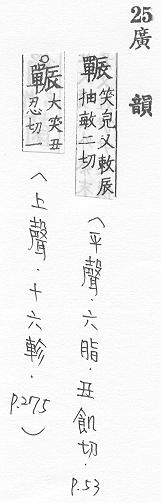 25 廣韻
辴 笑皃又敕辰抽敏二切
〈平聲．六脂．丑飢切．P.53
辴 大笑丑忍切一
〈上聲．十六軫．P.275）